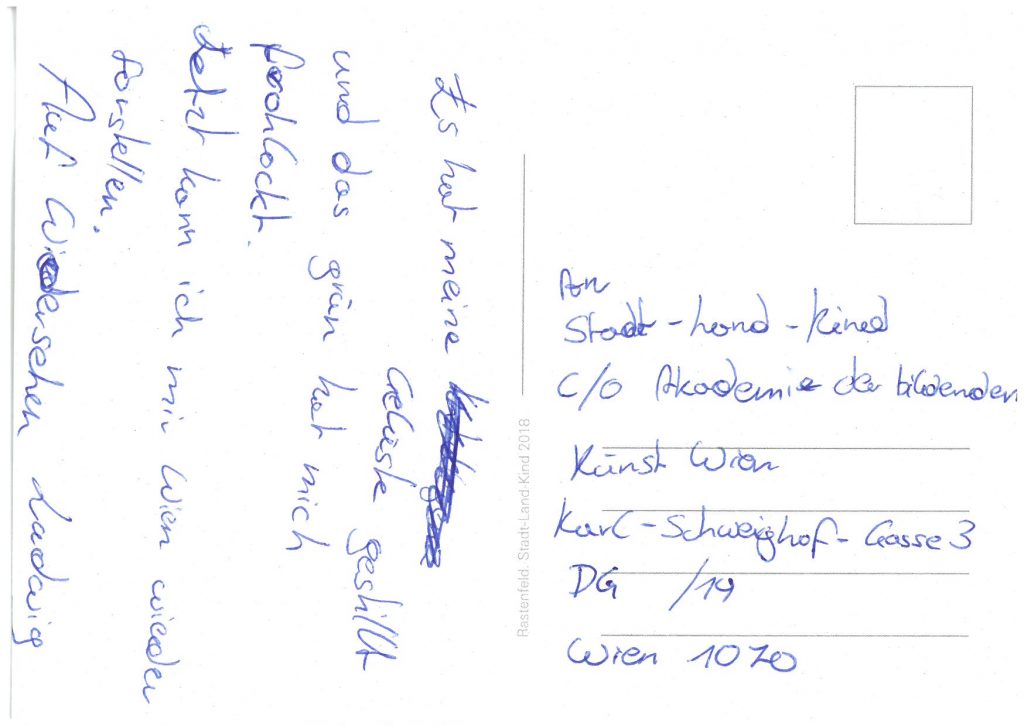 Es hat meine
Gelüste gestillt
und das grün hat mich
frohlockt.
Jetzt kann ich mir Wien wieder
forstellen.
Auf Wiedersehen Ludwig
Rastenfeld. Stadt-Land-Kind 2018
An
Stadt-Land-Kind
C/O Akademie der bildenden
Kunst Wien
Karl-Schweighof-Gasse 3
DG /19
Wien 1070